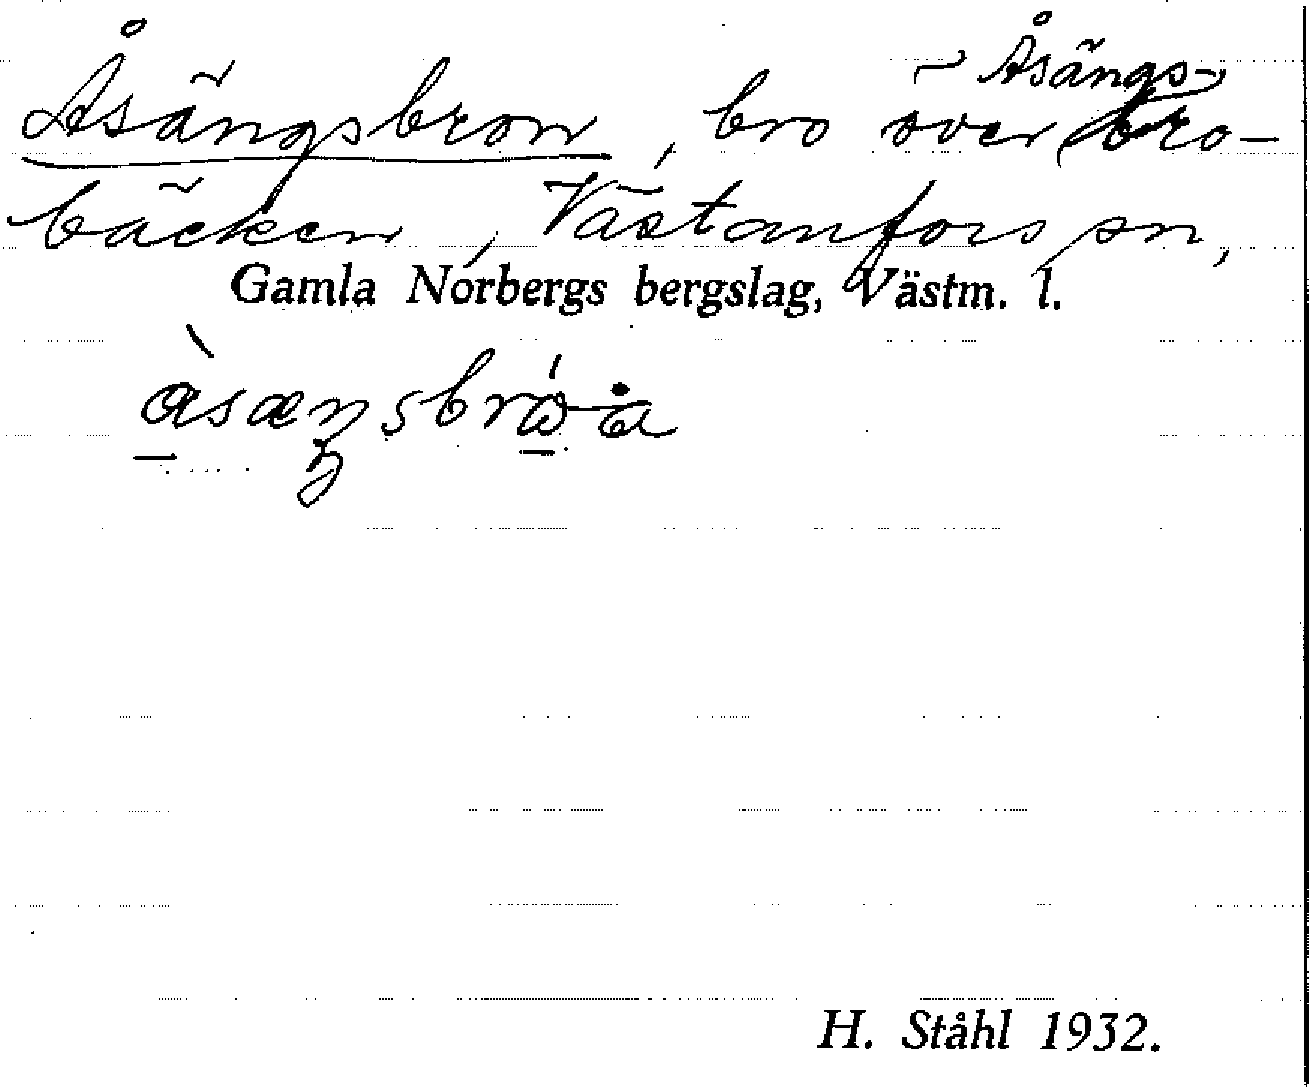 Åsängsbron, bro över Åsängsbro-
bäcken, Västanfors sn,
Gamla Norbergs bergslag, Västm. l.
H. Ståhl 1932.